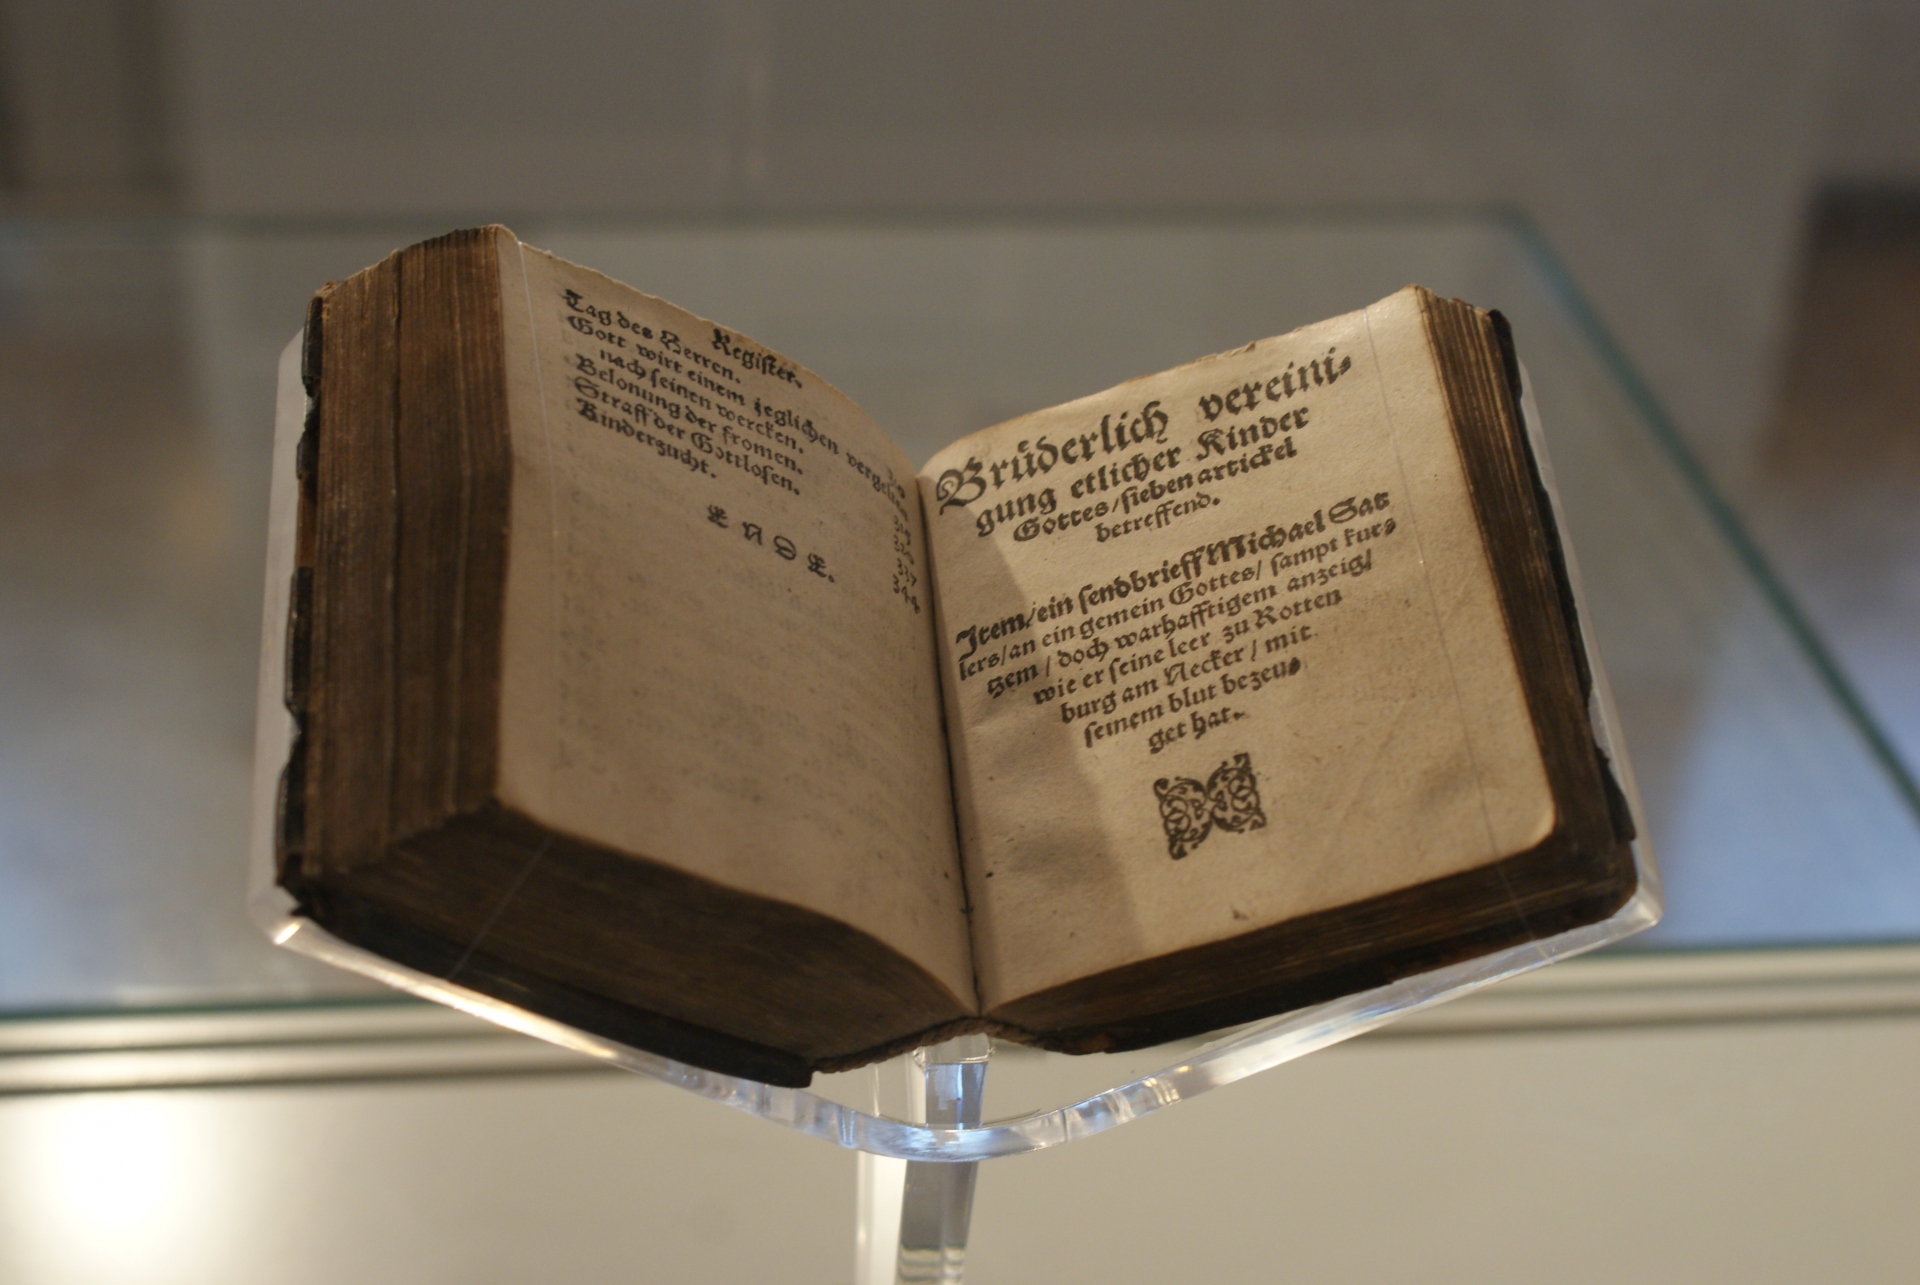 Register.
Tag des Herren.
Gott wirt einem jeglichen vergelten
nach seinen wercken.
Belonung der fromen.
Straff der Gottlosen.
Kinderzucht. 344
E N D E.
Brüderlich vereini⸗
gung etlicher Kinder
Gottes/sieben artickel
betreffend.
Item/ein sendbrieff Michael Sat
lers/an ein gemein Gottes/ sampt kur⸗
tzem / doch warhafftigem anzeig/
wie er seine leer zu Rotten
burg am Necker / mit
seinem blut bezeu⸗
get hat.